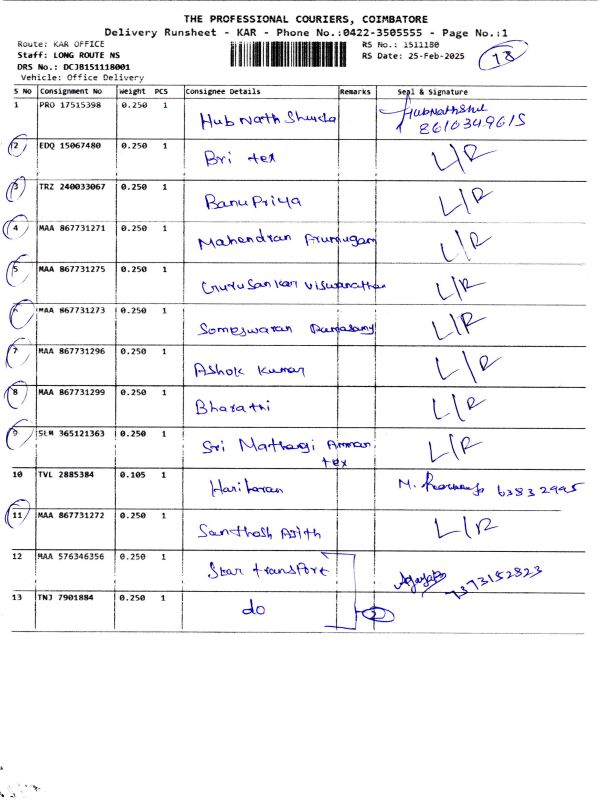 THE PROFESSIONAL COURIERS, COIMBATORE
Delivery Runsheet - KAR - Phone No.:0422-3505555 - Page No.:1
Route: KAR OFFICE
RS No.: 1511180
Staff: LONG ROUTE NS
RS Date: 25-Feb-2025
DRS No.: DCJB151118001
Vehicle: Office Delivery
S No Consignment No Weight PCS Consignee Details Remarks Seal & Signature
1 PRO 17515398 0.250 1 HubNath 8610349615
2 EDQ 15067480 0.250 1 Bri tex L/R
3 TRZ 240033067 0.250 1 BanuPriya L/R
4 MAA 867731271 0.250 1 Mahendran Arumugam L/R
5 MAA 867731275 0.250 1 Gurusankar Viswanathan L/R
6 MAA 867731273 0.250 1 Someswaran Ramasamy L/R
7 MAA 867731296 0.250 1 Ashok Kumar L/R
8 MAA 867731299 0.250 1 Bharathi L/R
9 SLM 365121363 0.250 1 Sri Mathangi Amman L/R
tex
10 TVL 2885384 0.105 1 Hariharan M.
11 MAA 867731272 0.250 1 Santhosh Ajith L/R
12 MAA 576346356 0.250 1 Star transport 7373152823
13 TNJ 7901884 0.250 1 do 2